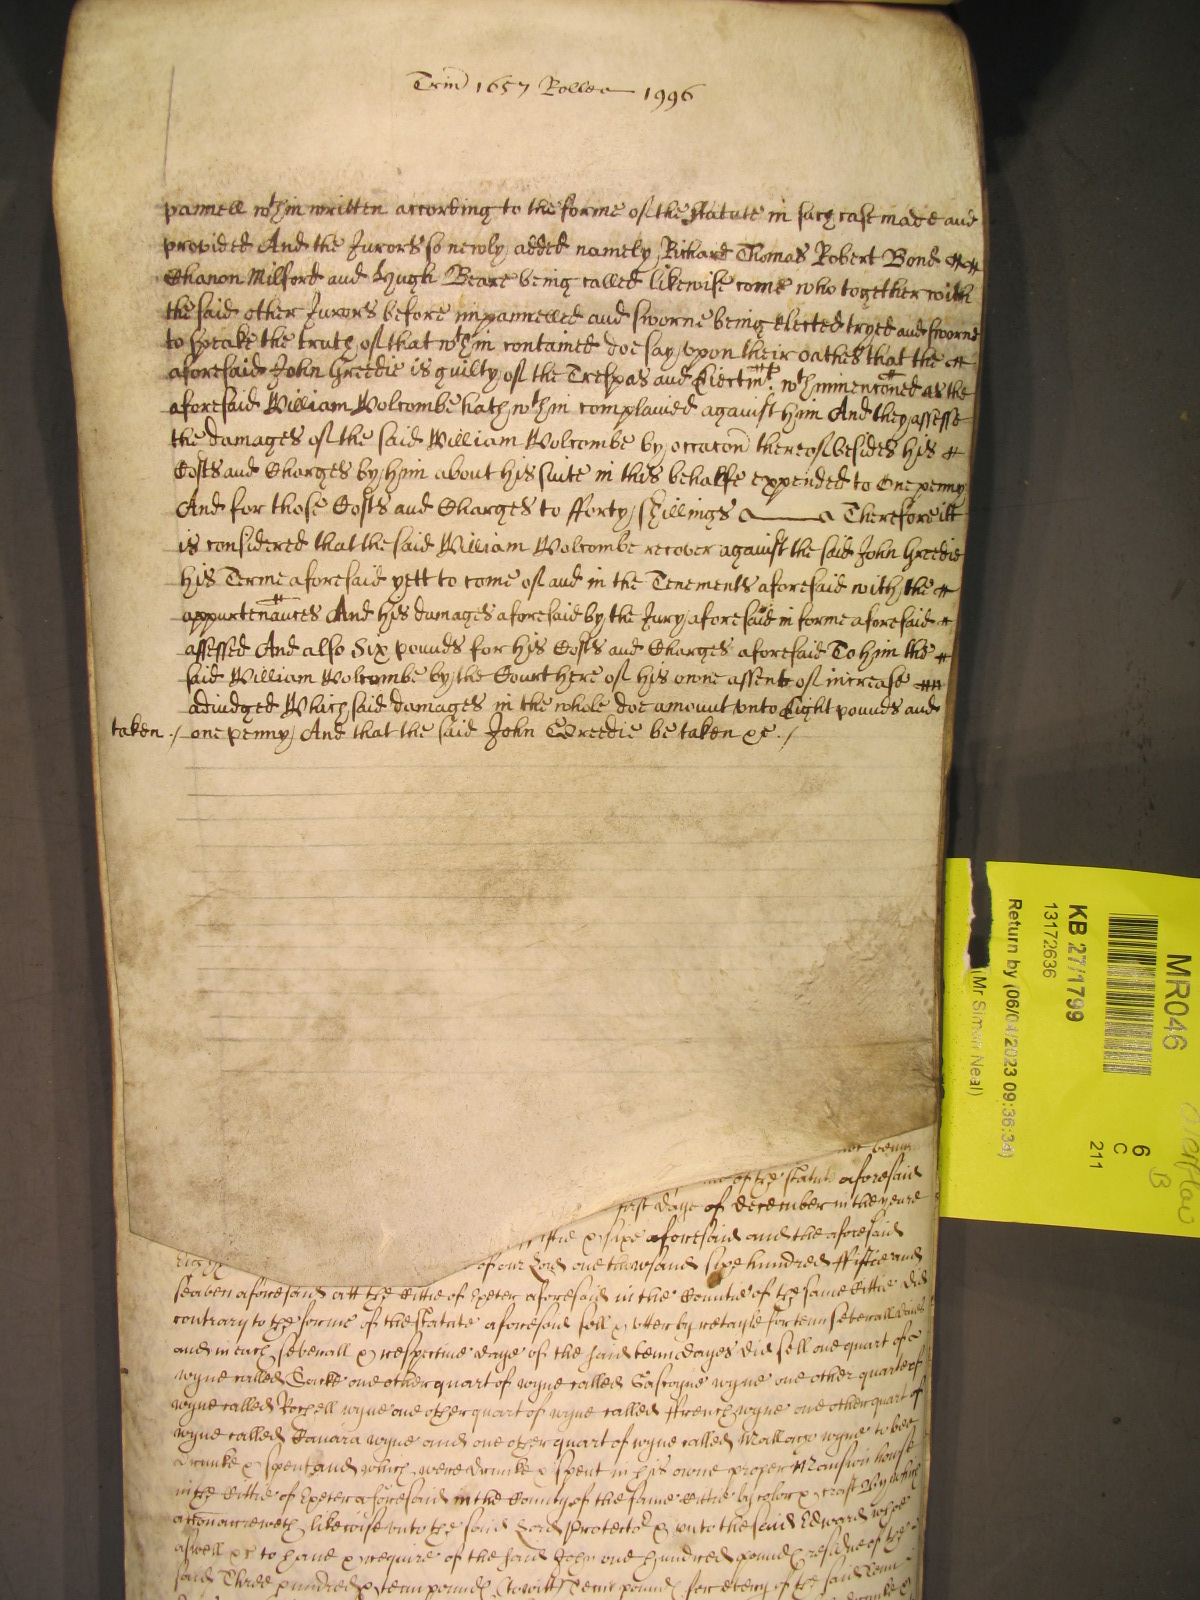 Trin 1657 Rolle 1996
pannell wthin written according to the forme of the Statute in such case made and
provided And the Jurors so newly added namely Richard Thomas Robert Bond
Shanon Milford and Hugh Beare being called likewise come who together with
the said other Jurors before impannelled and sworne being elected tryed and sworne
to speake the truth of that wthin contained doe say upon their oathes that the
aforesaid John Greedie is guilty of the Trespas and Eiectmt wthinmenconed as the
aforesaid William Wolcombe hath wthin complained against him And they assesse
the damages of the said William Wolcombe by occacon thereof besides his
Costs and Charges by him about his suite in this behalfe expended to One penny
And for those Costs and Charges to fforty shillings Therefore itt
is considered that the said William Wolcombe recover against the said John Greedie
his Terme aforesaid yett to come of and in the Tenements aforesaid with the
appurtenances And his damages aforesaid by the Jury aforesaid in forme aforesaid
assessed And also Six pounds for his Costs and Charges aforesaid To him the
said William Wolcombe by the Court here of his owne assent of increase
adiudged Which said damages in the whole doe amount unto Eight pounds and
taken ./ one penny And that the said John Greedie be taken &c ./
of the statute aforesaid
last daye of December in the yeare
& sixe aforesaid and the aforesaid
of our Lord one thowsand sixe hundred ffiftie and
seaven aforesaid att the Cittie of Exeter aforesaid in the Countie of the same Cittie did
contrary to the forme of the Statute aforesaid sell & utter by retayle for tenn severall daies
and in each severall & respective daye of the said tenn dayes did sell one quart of
wyne called Sacke one other quart of wyne called Gascoyne wyne one other quarte of
wyne called Rochell wyne one other quart of wyne called ffrench wyne one other quart of
wyne called Canara wyne and one other quart of wyne called Mallaço wyne to bee
drunke & spent and which were drunke & spent in his owne proper Mansion house
in the Cittie of Exeter aforesaid in the County of the same Cittie by color & craft By which
accon accreweth likewise unto the said Lord Protector & unto the said Edward whoe
aswell &c to have & require of the said John one hundred pounds residue of the
said Three hundred & tenn pounds (to witt) Tenn pounds for every of the said tenn
MR046
KB 27/1799
13172636
Return by (06/04/2023 09:36:34)
(Mr Simon Neal)
6
C
211
overflow
B